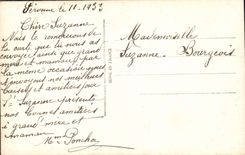 Péronne le 11-1932
Chère Suzanne
Nous te remercions de
la carte que tu nous as
envoyé ainsi que grand
mère et maman par
la même occasion nous
t'envoyons nos meilleurs
baisers et amitiés pour
Ste Suzanne présente
nos bonnes amitiés
à grand'mère et
maman
Mme
Mademoiselle
Suzanne Bourgeois